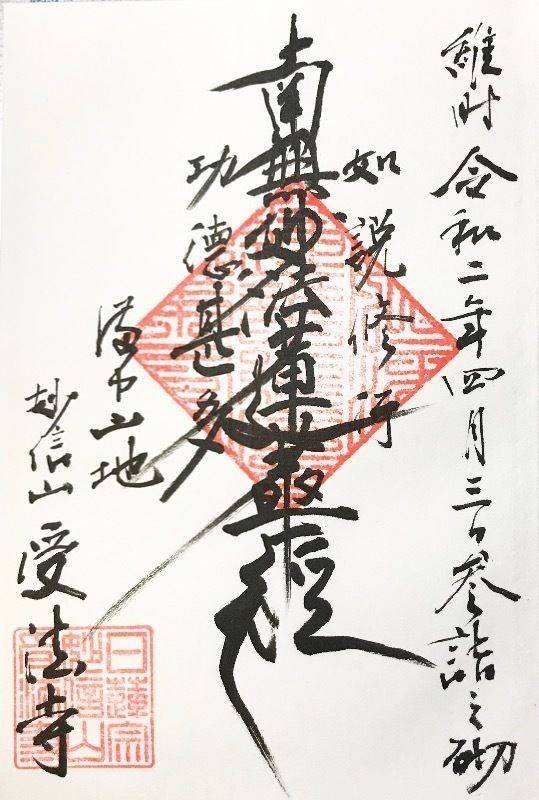 維時 令和二年四月三日参詣之砌
如説修行
南無妙法蓮華経
功徳甚多
備中山地
妙信山 受法寺
日蓮宗
妙信山
受法寺